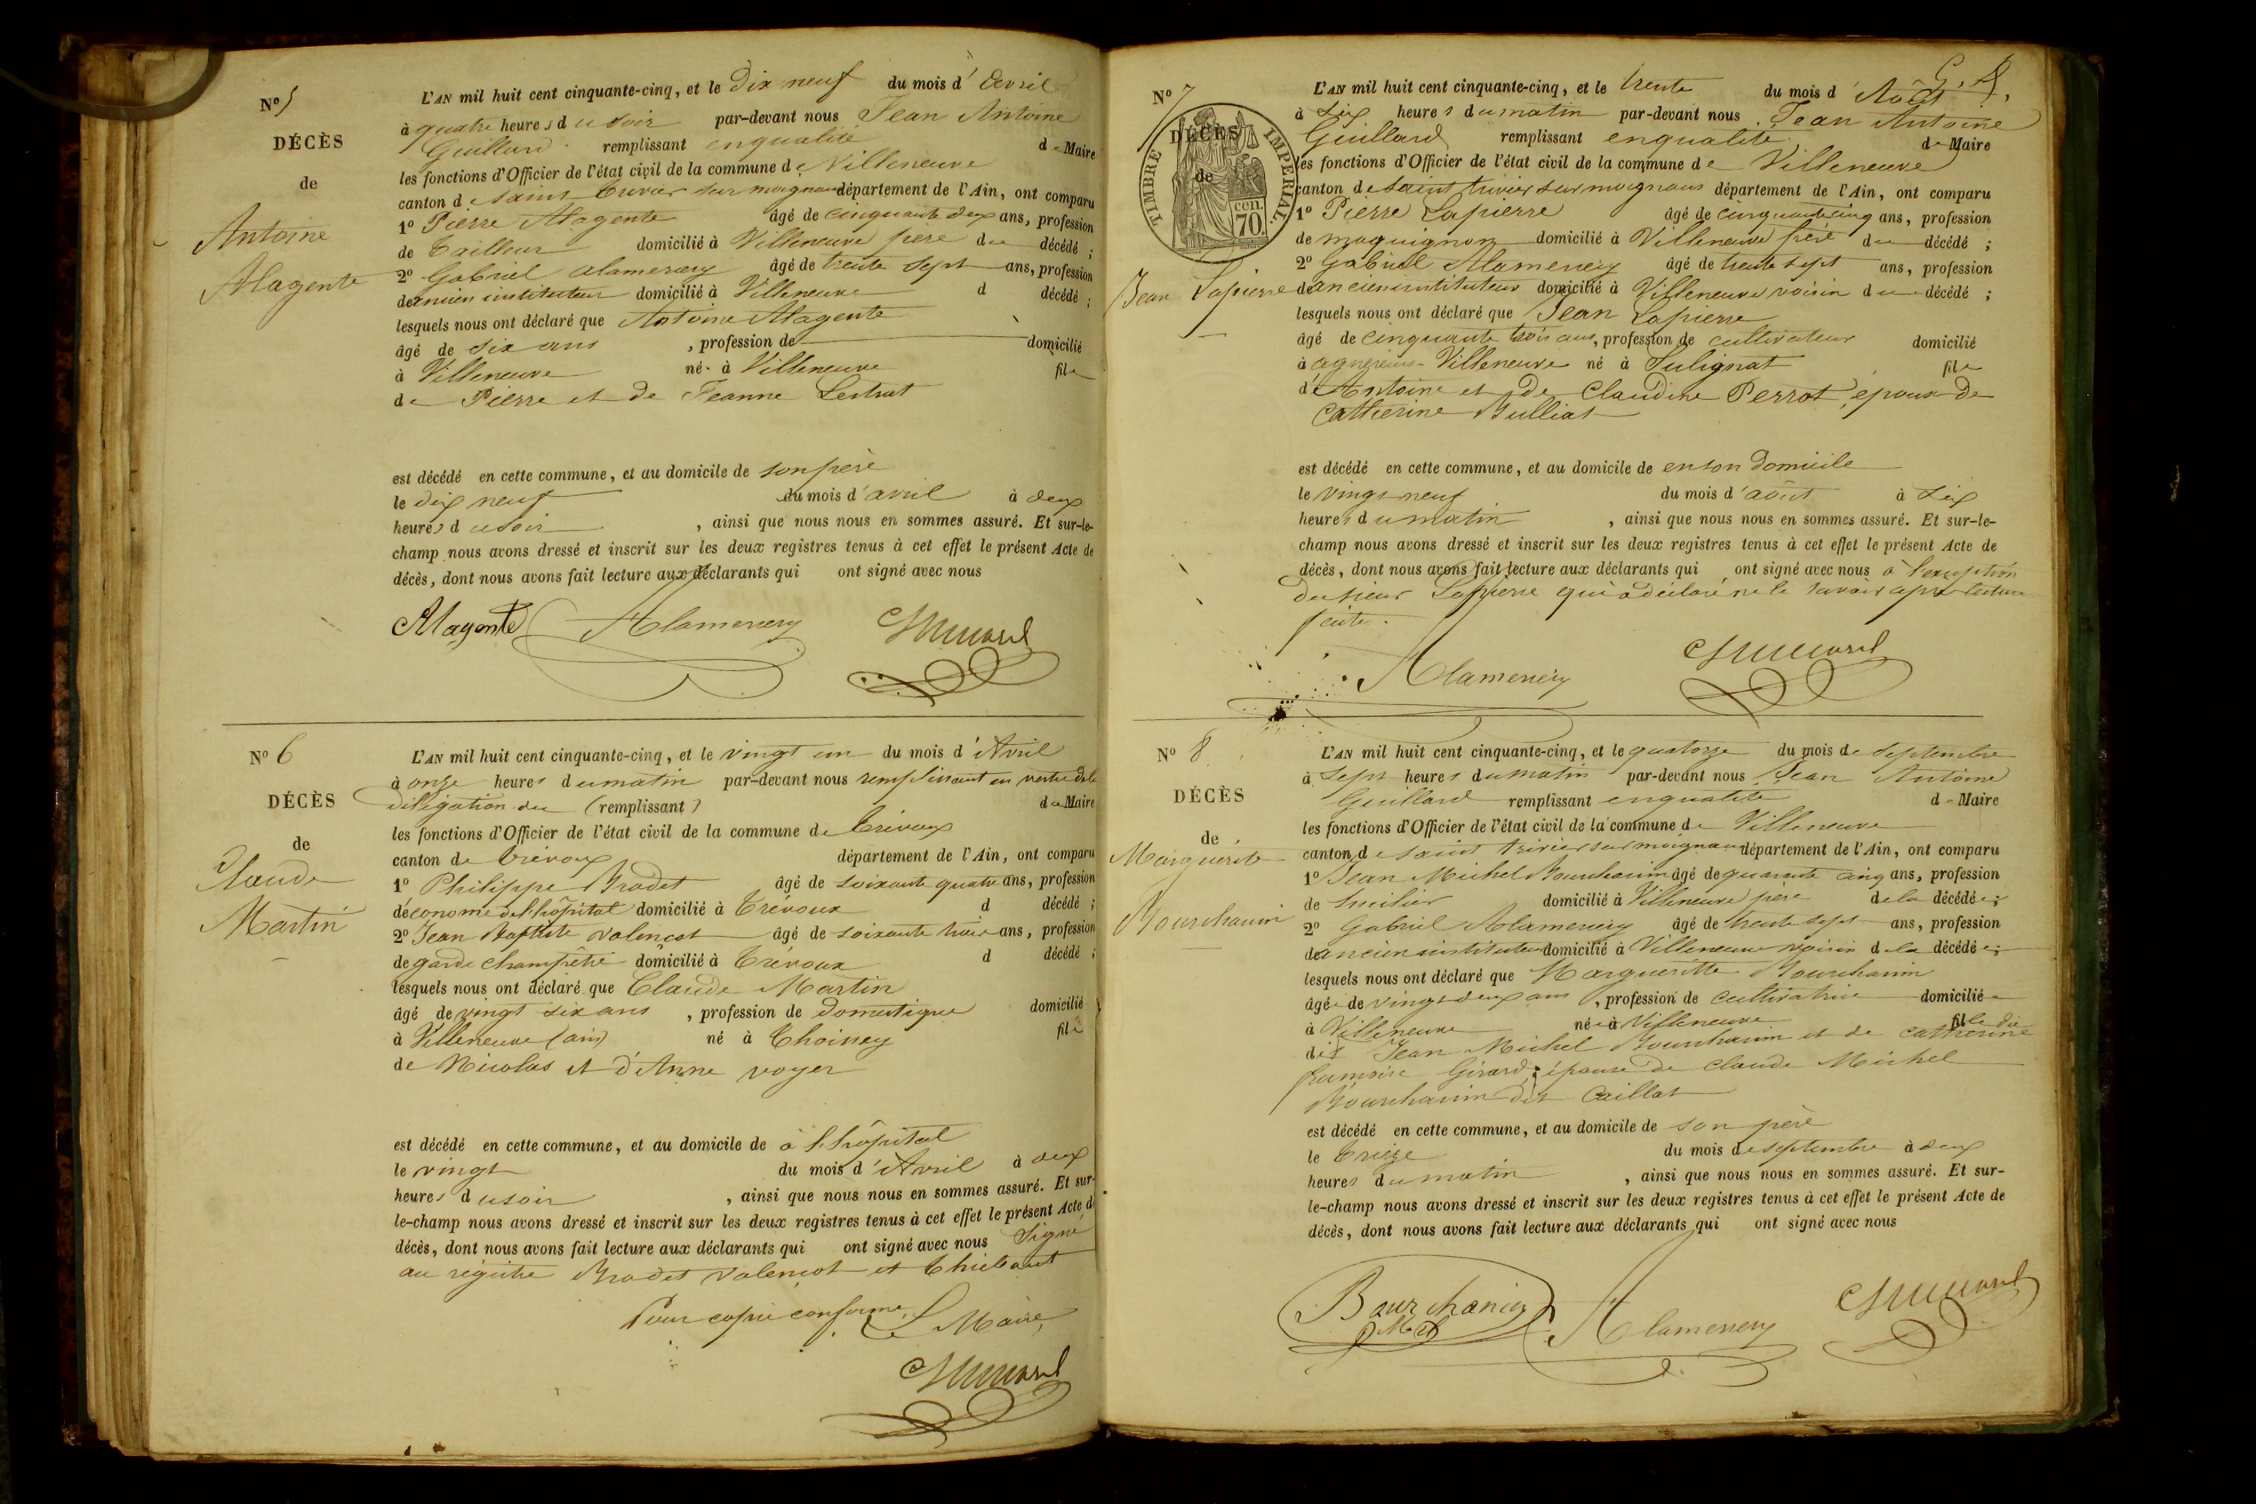 N° 5
DÉCÈS
de
Antoine
Alagente
L'AN mil huit cent cinquante-cinq, et le Dix neuf du mois d' Avril
à quatre heures du soir par-devant nous Jean Antoine
Guillard remplissant enqualité de Maire
les fonctions d'Officier de l'état civil de la commune de Villeneuve
canton de saint trivier sur moignans département de l'Ain, ont comparu
1° Pierre Alagente âgé de cinquante deux ans, profession
de Tailleur domicilié à Villeneuve père du décédé ;
2° Gabriel alamercery âgé de trente sept ans, profession
d'ancien instituteur domicilié à Villeneuve d décédé ;
lesquels nous ont déclaré que Antoine Alagente
âgé de six ans , profession de domicilié
à Villeneuve né à Villeneuve fils
de Pierre et de Jeanne Lestrat
est décédé en cette commune, et au domicile de son père
le dix neuf du mois d'avril à deux
heures du soir , ainsi que nous nous en sommes assuré. Et sur-le-
champ nous avons dressé et inscrit sur les deux registres tenus à cet effet le présent Acte de
décès, dont nous avons fait lecture aux déclarants qui ont signé avec nous
Alagente Alamercery
N° 6
DÉCÈS
de
Claude
Martin
L'AN mil huit cent cinquante-cinq, et le vingt un du mois d'Avril
à onze heures du matin par-devant nous remplissant en vertu de la
délégation du (remplissant) du Maire
les fonctions d'Officier de l'état civil de la commune de Trévoux
canton de Trévoux département de l'Ain, ont comparu
1° Philippe Bradet âgé de soixante quatre ans, profession
d'économe de l'hôpital domicilié à Trévoux d décédé ;
2° Jean Baptiste valençot âgé de soixante trois ans, profession
de garde champêtre domicilié à Trévoux d décédé ;
lesquels nous ont déclaré que Claude Martin
âgé de vingt six ans , profession de domestique domicilié
à Villeneuve (ain) né à Thoissey fils
de Nicolas et d'Anne voyer
est décédé en cette commune, et au domicile de à l'hôpital
le vingt du mois d'Avril à deux
heures du soir , ainsi que nous nous en sommes assuré. Et sur-
le-champ nous avons dressé et inscrit sur les deux registres tenus à cet effet le présent Acte de
décès, dont nous avons fait lecture aux déclarants qui ont signé avec nous Signé
au registre Bradet valençot et Thiebaut
Pour copie conforme, Le Maire,
N° 7
TIMBRE IMPÉRIAL
cen. 70.
DÉCÈS
de
Jean Lapierre
L'AN mil huit cent cinquante-cinq, et le trente du mois d'Août
à six heures du matin par-devant nous Jean Antoine
Guillard remplissant enqualité de Maire
les fonctions d'Officier de l'état civil de la commune de Villeneuve
canton de saint trivier sur moignans département de l'Ain, ont comparu
1° Pierre Lapierre âgé de cinquante cinq ans, profession
de maquignon domicilié à Villeneuve frère du décédé ;
2° Gabriel Alamercery âgé de trente sept ans, profession
d'ancien instituteur domicilié à Villeneuve voisin du décédé ;
lesquels nous ont déclaré que Jean Lapierre
âgé de cinquante trois ans, profession de cultivateur domicilié
à agnereins-Villeneuve né à Sulignat fils
d'Antoine et de Claudine Perrot, époux de
Catherine Bulliat
est décédé en cette commune, et au domicile de en son Domicile
le vingt neuf du mois d'août à six
heures du matin , ainsi que nous nous en sommes assuré. Et sur-le-
champ nous avons dressé et inscrit sur les deux registres tenus à cet effet le présent Acte de
décès, dont nous avons fait lecture aux déclarants qui ont signé avec nous à l'exception
du sieur Lapierre qui a déclaré ne le savoir après lecture
faite.
Alamercery
N° 8
DÉCÈS
de
Marguerite
Bourchanin
L'AN mil huit cent cinquante-cinq, et le quatorze du mois de septembre
à sept heures du matin par-devant nous Jean Antoine
Guillard remplissant enqualité de Maire
les fonctions d'Officier de l'état civil de la commune de Villeneuve
canton de saint trivier sur moignans département de l'Ain, ont comparu
1° Jean Michel Bourchanin âgé de quarante cinq ans, profession
de domicilié à Villeneuve père de la décédée ;
2° Gabriel Alamercery âgé de trente sept ans, profession
d'ancien instituteur domicilié à Villeneuve voisin de la décédée ;
lesquels nous ont déclaré que Margueritte Bourchanin
âgée de vingt deux ans , profession de cultivatrice domiciliée
à Villeneuve née à Villeneuve fille de
Jean Michel Bourchanin et de Catherine
françoise Girard, épouse de Claude Michel
Bourchanin dit Caillat
est décédé en cette commune, et au domicile de son père
le treize du mois de septembre à deux
heures du matin , ainsi que nous nous en sommes assuré. Et sur-
le-champ nous avons dressé et inscrit sur les deux registres tenus à cet effet le présent Acte de
décès, dont nous avons fait lecture aux déclarants qui ont signé avec nous
Bourchanin Alamercery